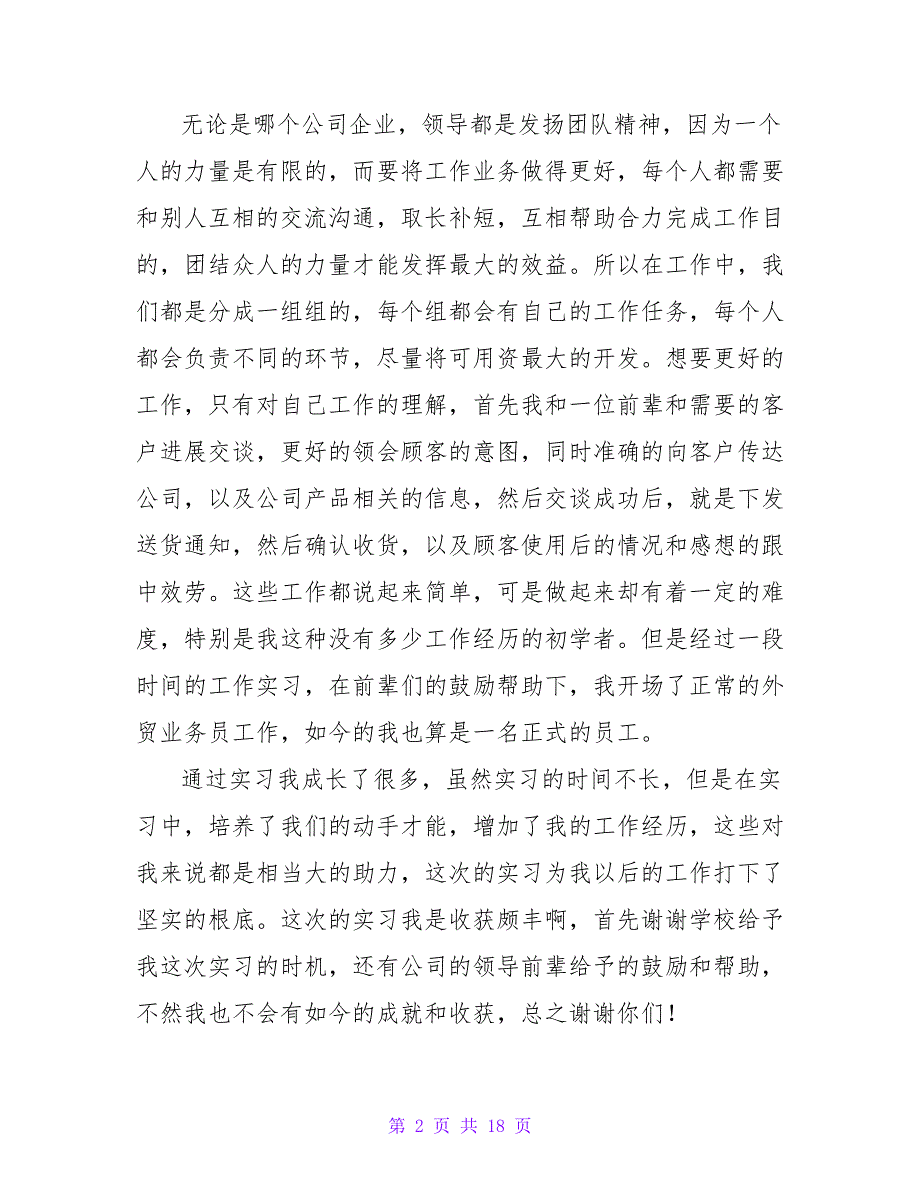 无论是哪个公司企业，领导都是发扬团队精神，因为一个
人的力量是有限的，而要将工作业务做得更好，每个人都需要
和别人互相的交流沟通，取长补短，互相帮助合力完成工作目
的，团结众人的力量才能发挥最大的效益。所以在工作中，我
们都是分成一组组的，每个组都会有自己的工作任务，每个人
都会负责不同的环节，尽量将可用资最大的开发。想要更好的
工作，只有对自己工作的理解，首先我和一位前辈和需要的客
户进展交谈，更好的领会顾客的意图，同时准确的向客户传达
公司，以及公司产品相关的信息，然后交谈成功后，就是下发
送货通知，然后确认收货，以及顾客使用后的情况和感想的跟
中效劳。这些工作都说起来简单，可是做起来却有着一定的难
度，特别是我这种没有多少工作经历的初学者。但是经过一段
时间的工作实习，在前辈们的鼓励帮助下，我开场了正常的外
贸业务员工作，如今的我也算是一名正式的员工。
通过实习我成长了很多，虽然实习的时间不长，但是在实
习中，培养了我们的动手才能，增加了我的工作经历，这些对
我来说都是相当大的助力，这次的实习为我以后的工作打下了
坚实的根底。这次的实习我是收获颇丰啊，首先谢谢学校给予
我这次实习的时机，还有公司的领导前辈给予的鼓励和帮助，
不然我也不会有如今的成就和收获，总之谢谢你们！
第 2 页 共 18 页